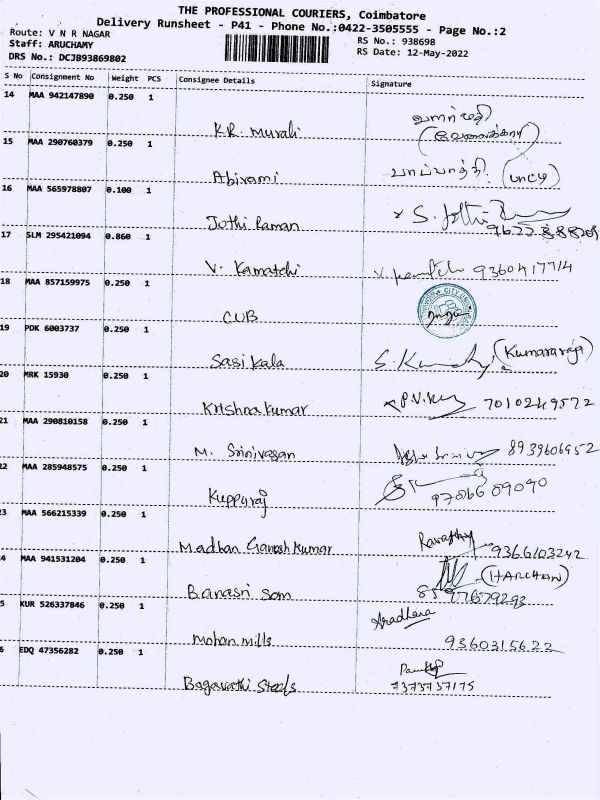 THE PROFESSIONAL COURIERS, Coimbatore
Delivery Runsheet - P41 - Phone No.:0422-3505555 - Page No.:2
Route: V N R NAGAR
Staff: ARUCHAMY
DRS No.: DCJB93869802
RS No.: 938698
RS Date: 12-May-2022
S No Consignment No Weight PCS Consignee Details Signature
14 MAA 942147890 0.250 1
K.R. Murali வளர்மதி
(வேலைக்காரி)
15 MAA 290760379 0.250 1
Abirami பாப்பாத்தி (பாட்டி)
16 MAA 565978807 0.100 1
Jothi Raman
17 SLM 295421094 0.860 1
V. Kamatchi 9360417714
18 MAA 857159975 0.250 1
CUB
19 PDK 6003737 0.250 1
Sasikala (Kumararaja)
20 MRK 15930 0.250 1
Krishna kumar 7010249572
21 MAA 290810158 0.250 1
M. Srinivasan 8939606952
22 MAA 285948575 0.250 1
Kuppuraj
23 MAA 566215339 0.250 1
Madhan Ganesh kumar 9366103242
4 MAA 941531204 0.250 1
Banasri Som
5 KUR 526337846 0.250 1
Mohan mills 9360315622
6 EDQ 47356282 0.250 1
Bagavathi Steels 7373737175